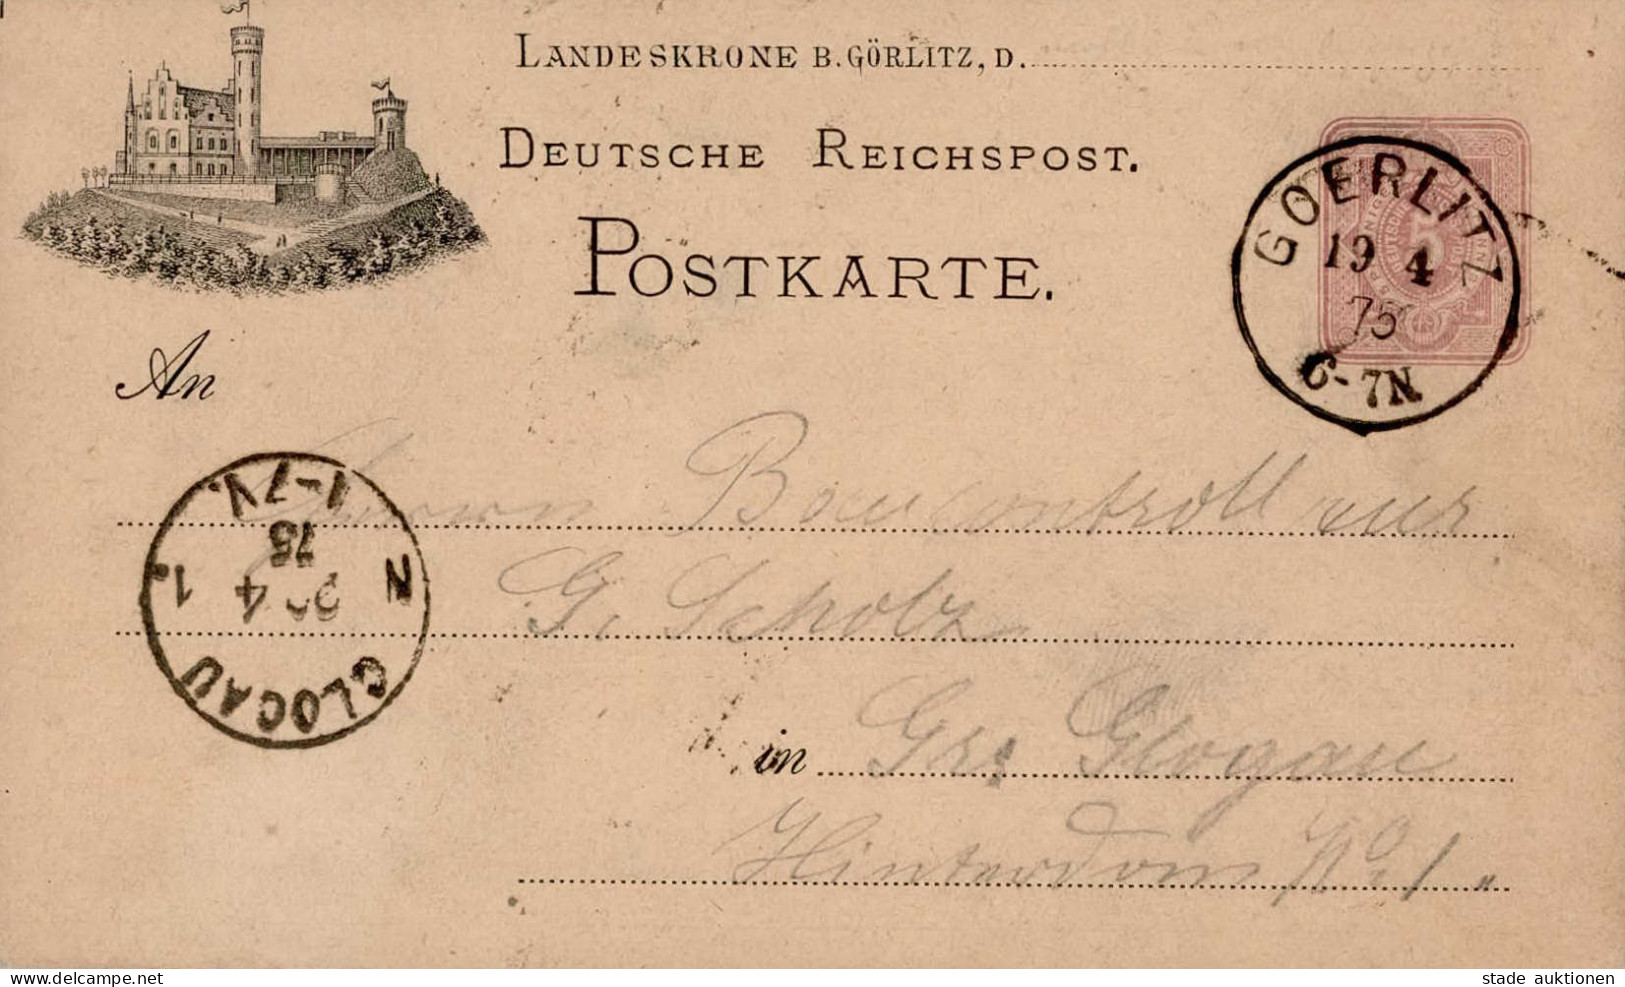 LANDESKRONE B. GÖRLITZ, D.
DEUTSCHE REICHSPOST.
POSTKARTE.
GOERLITZ
19 4
75
6-7N.
An
Herrn Baucontrolleur
G. Scholz
in Grs Glogau
Hinterdom No 1.
GLOGAU
4
75
1-7V.
N 1.
www.delcampe.net
stade auktionen